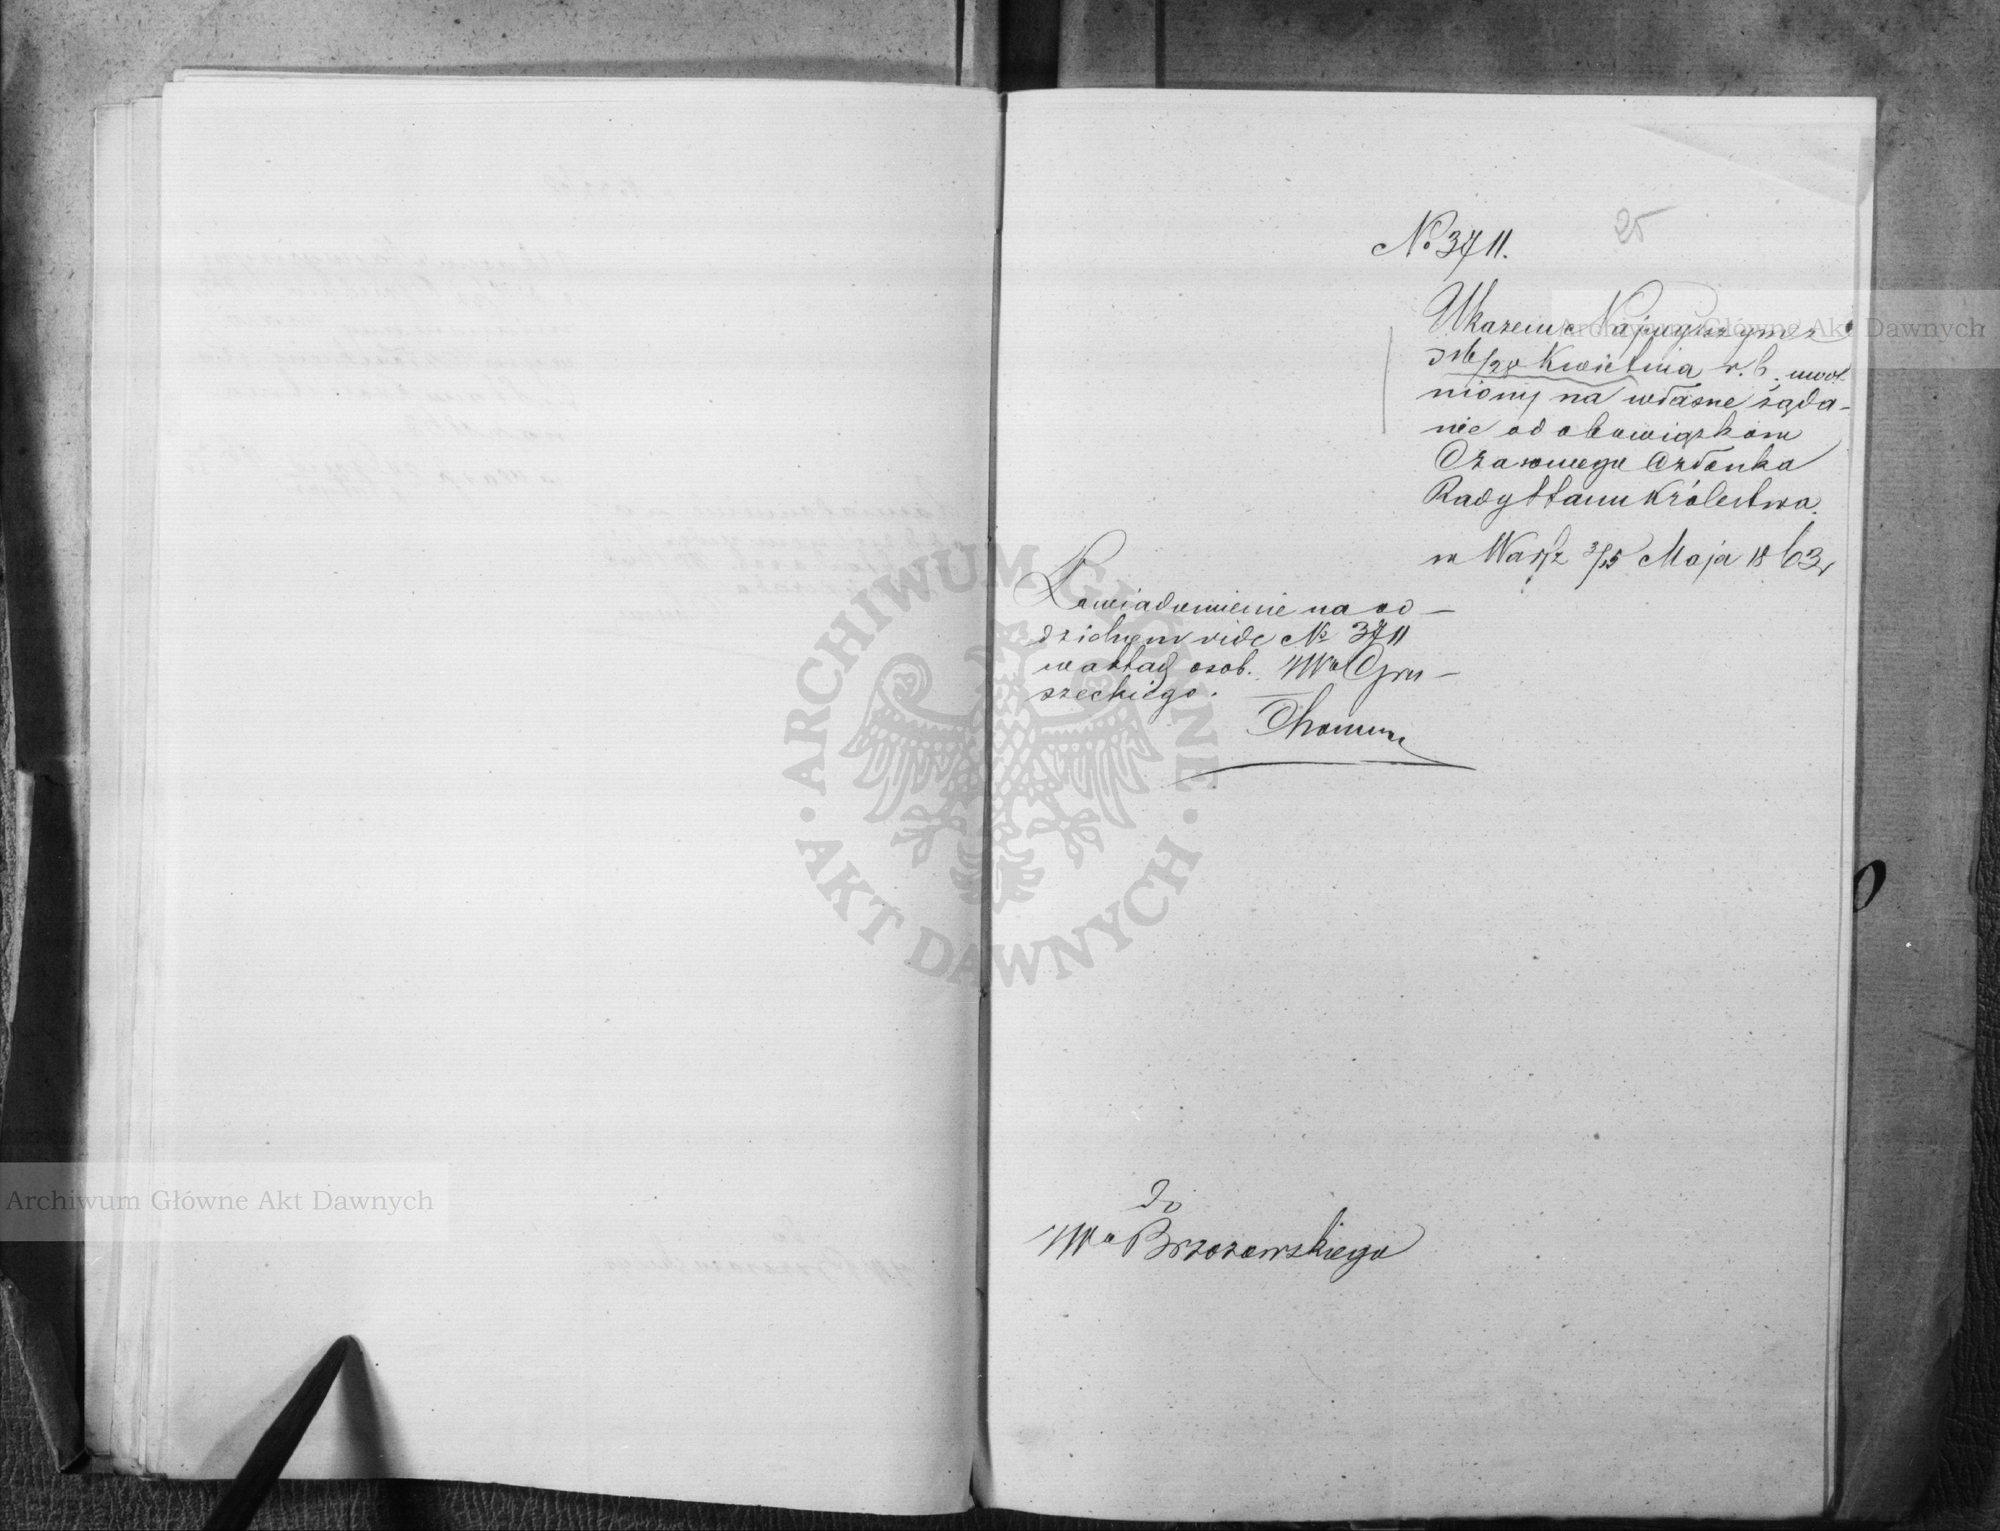 25
№ 3711.
Ukazem Najwyższym z
d 16/28 Kwietnia r. b. uwol-
niony na własne żąda-
nie od obowiązków
Czasowego Członka
Rady Stanu Królestwa.
w Warsz 3/15 Maja 1863 r
Zawiadomienie na od-
dzielnem vide № 3711
w aktach osob. JWo Gru-
szeckiego.
do
JWo Brzozowskiego
Archiwum Główne Akt Dawnych
Archiwum Główne Akt Dawnych
ARCHIWUM GŁÓWNE
· AKT DAWNYCH ·